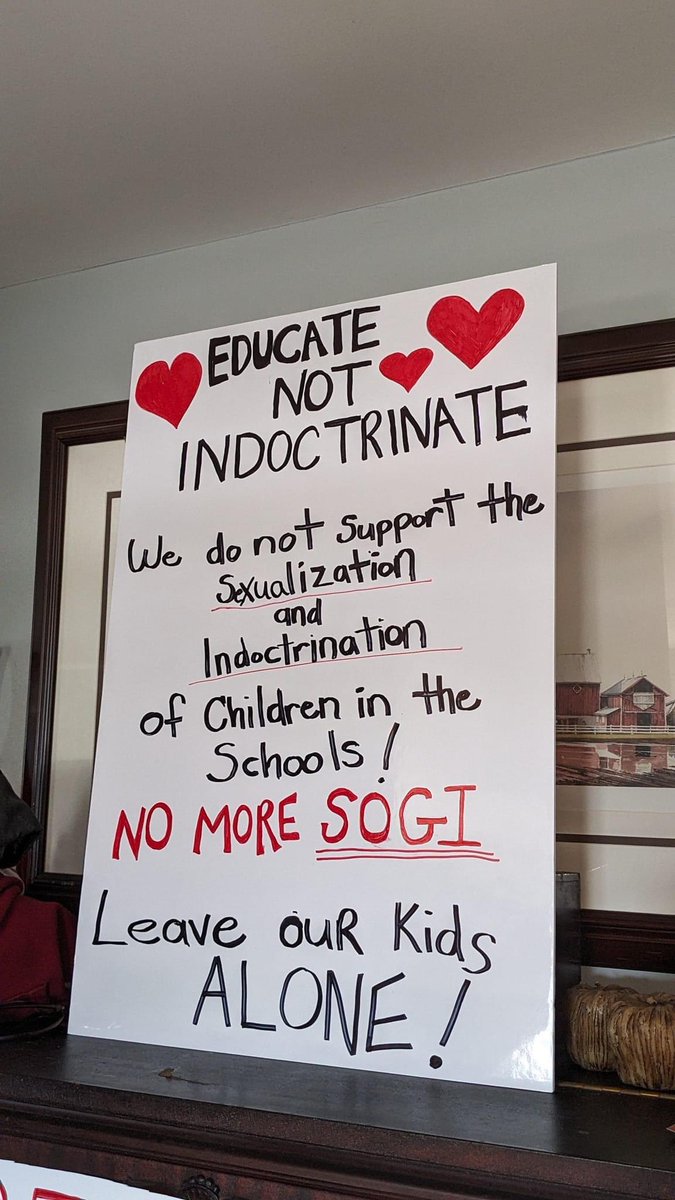 EDUCATE
NOT
INDOCTRINATE
We do not support the
Sexualization
and
Indoctrination
of Children in the
Schools!
NO MORE SOGI
Leave OUR Kids
ALONE!